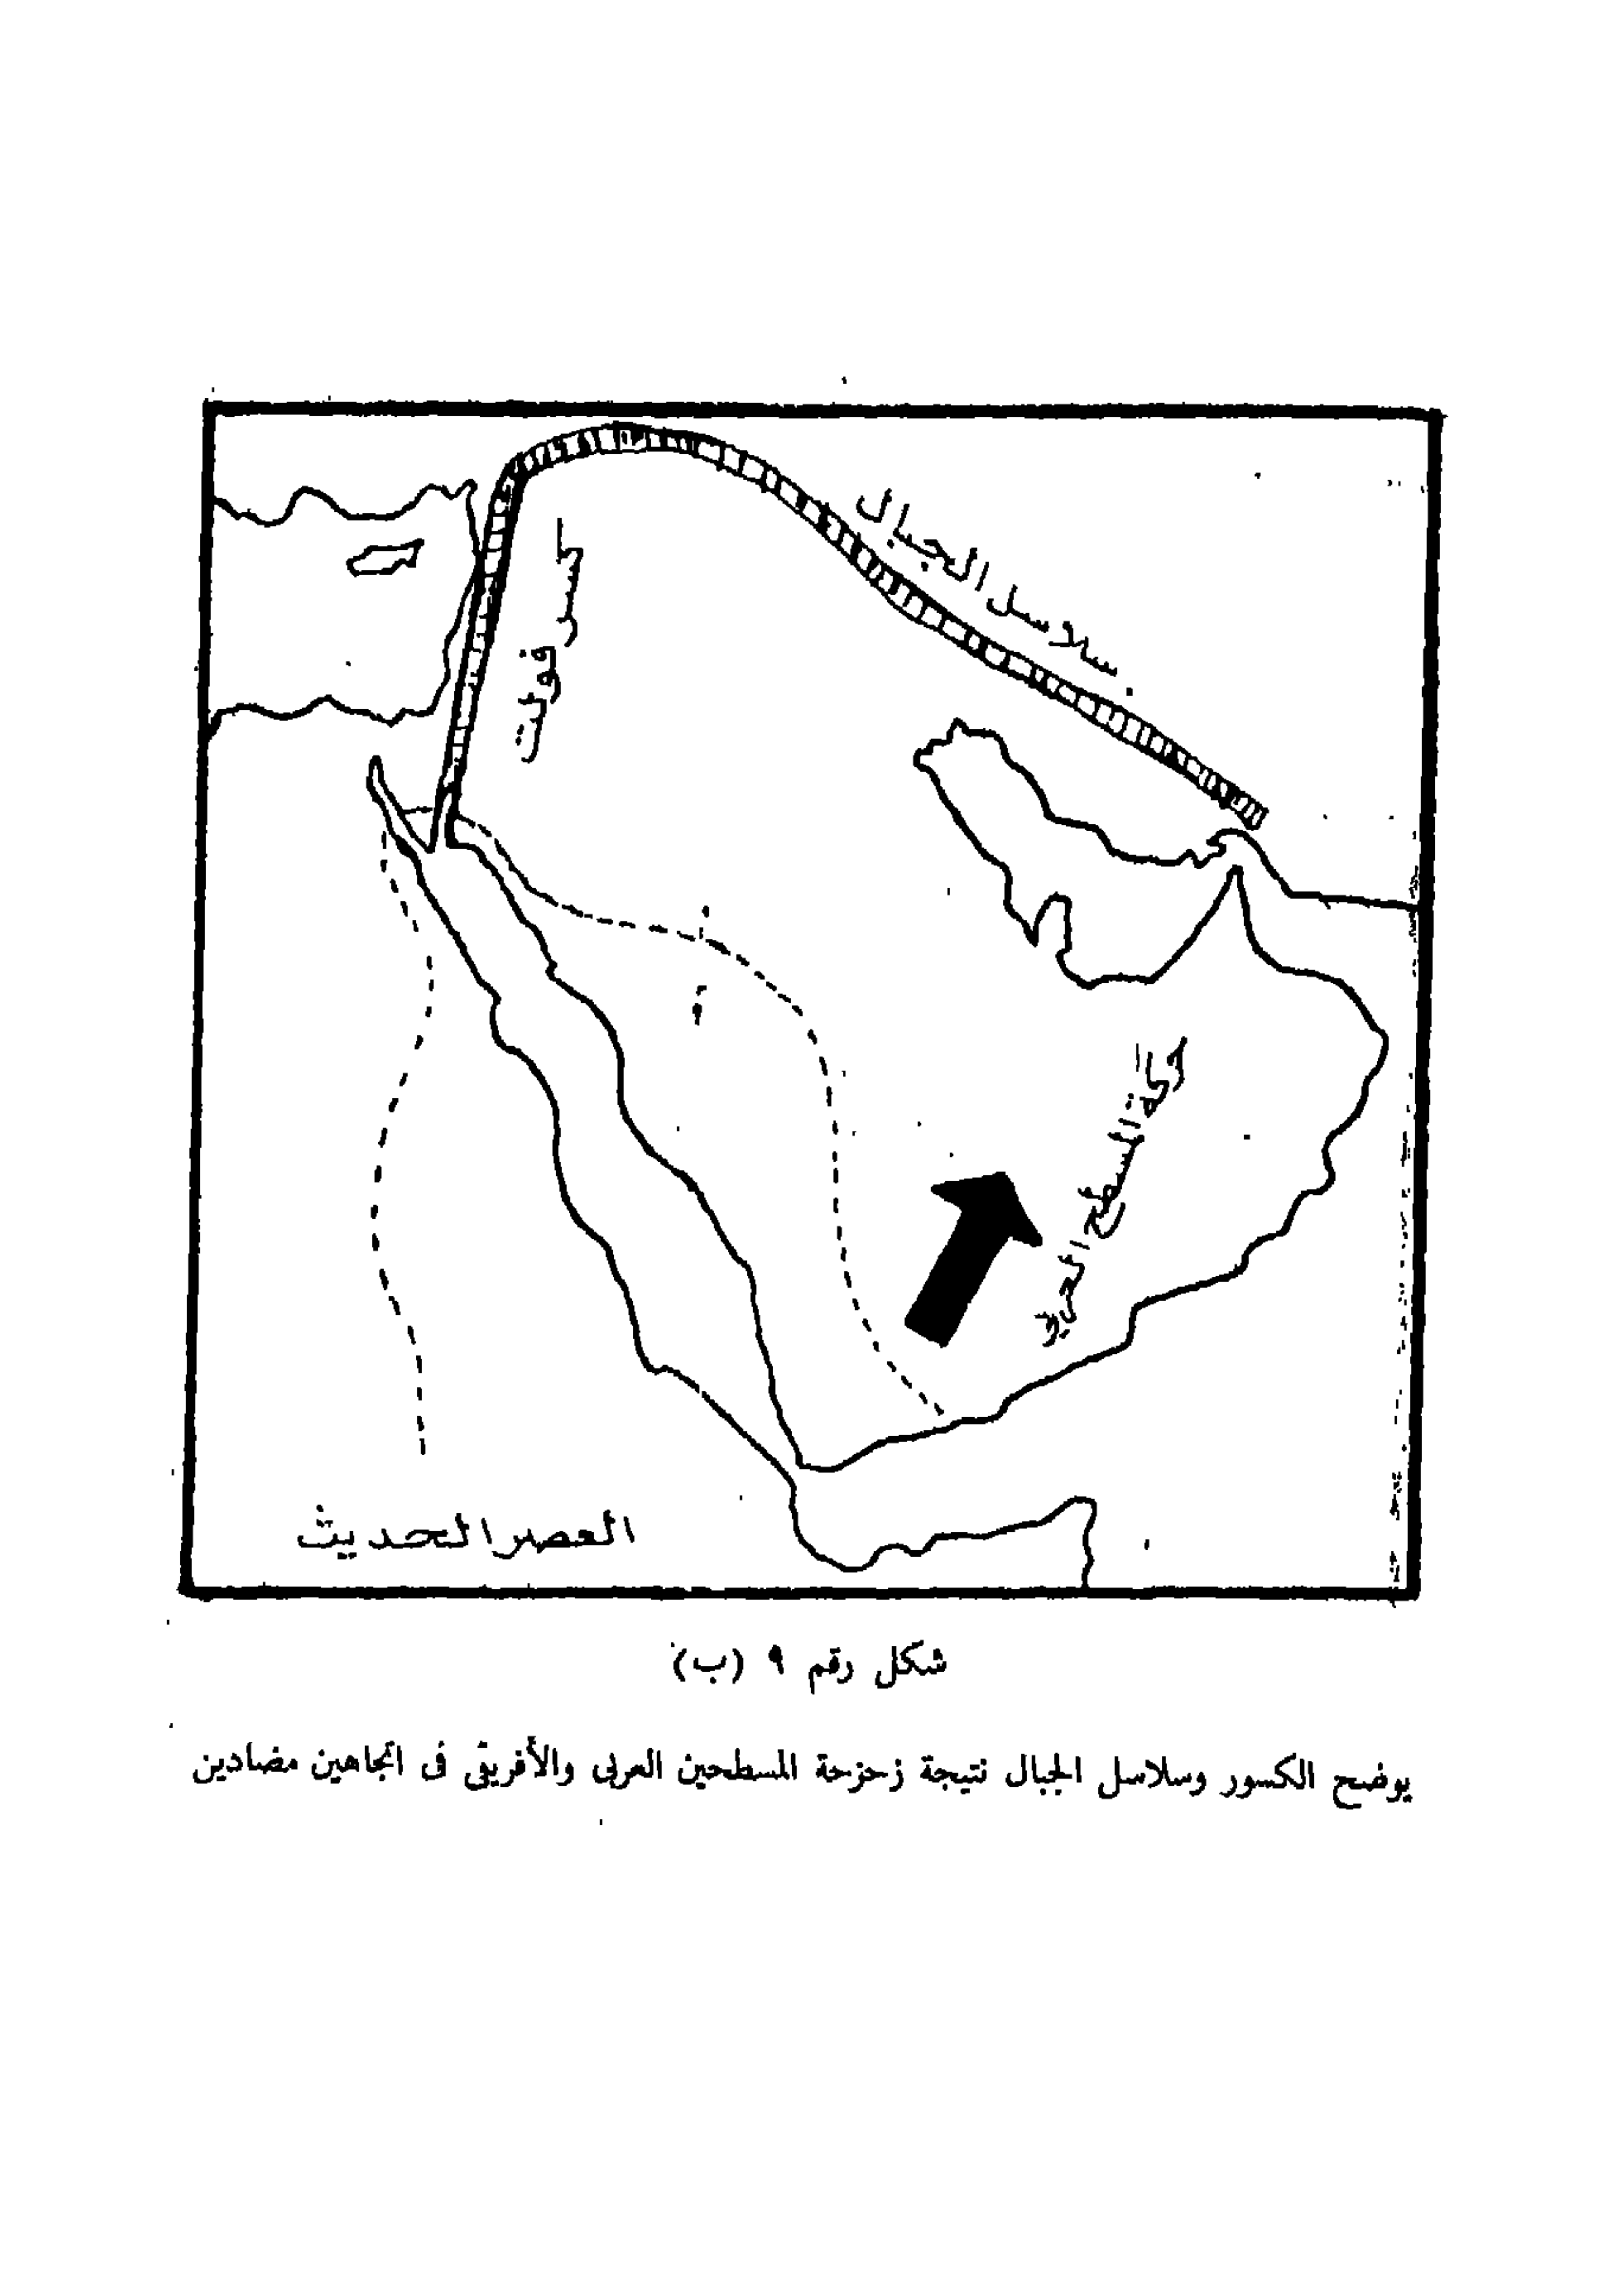 سلاسل الجبال
حركة المسطح العربي
العصر الحديث
شكل رقم ٩ (ب)
يوضح الكسور وسلاسل الجبال نتيجة زحزحة المسطحين العربى والأفريقى فى اتجاهين مضادين